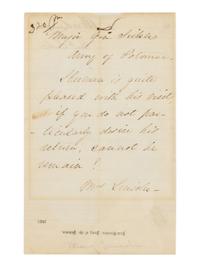 Major Gen Sickles
Army of Potomac
is quite
pleased with his visit,
if you do not par-
-ticularly desire his
return, cannot he
remain?
Mrs Lincoln